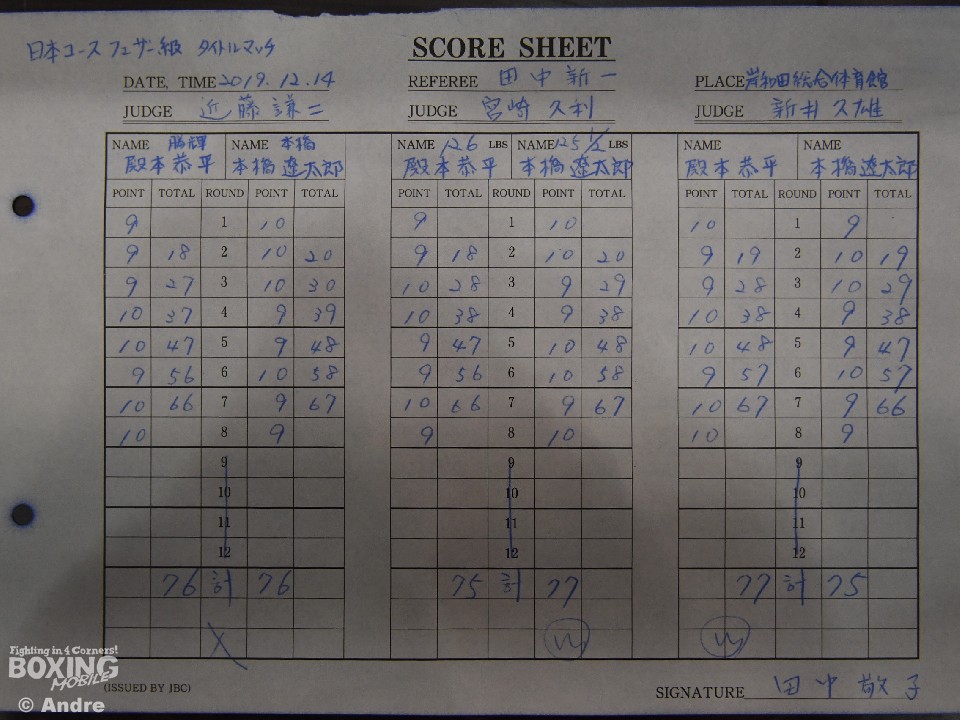 日本ユース フェザー級 タイトルマッチ
SCORE SHEET
DATE, TIME 2019.12.14 REFEREE 田中新一 PLACE 岸和田総合体育館
JUDGE 近藤謙二 JUDGE 宮崎久利 JUDGE 新井久雄
NAME 勝輝 NAME 本橋 NAME 126 LBS NAME 125 1/2 LBS NAME NAME
殿本恭平 本橋遼太郎 殿本恭平 本橋遼太郎 殿本恭平 本橋遼太郎
POINT TOTAL ROUND POINT TOTAL POINT TOTAL ROUND POINT TOTAL POINT TOTAL ROUND POINT TOTAL
9 1 10 9 1 10 10 1 9
9 18 2 10 20 9 18 2 10 20 9 19 2 10 19
9 27 3 10 30 10 28 3 9 29 9 28 3 10 29
10 37 4 9 39 10 38 4 9 38 10 38 4 9 38
10 47 5 9 48 9 47 5 10 48 10 48 5 9 47
9 56 6 10 58 9 56 6 10 58 9 57 6 10 57
10 66 7 9 67 10 66 7 9 67 10 67 7 9 66
10 8 9 9 8 10 10 8 9
9 9 9
10 10 10
11 11 11
12 12 12
76 計 76 75 計 77 77 計 75
X W W
Fighting in 4 Corners!
BOXING
MOBILE
(ISSUED BY JBC) SIGNATURE 田中敬子
© Andre